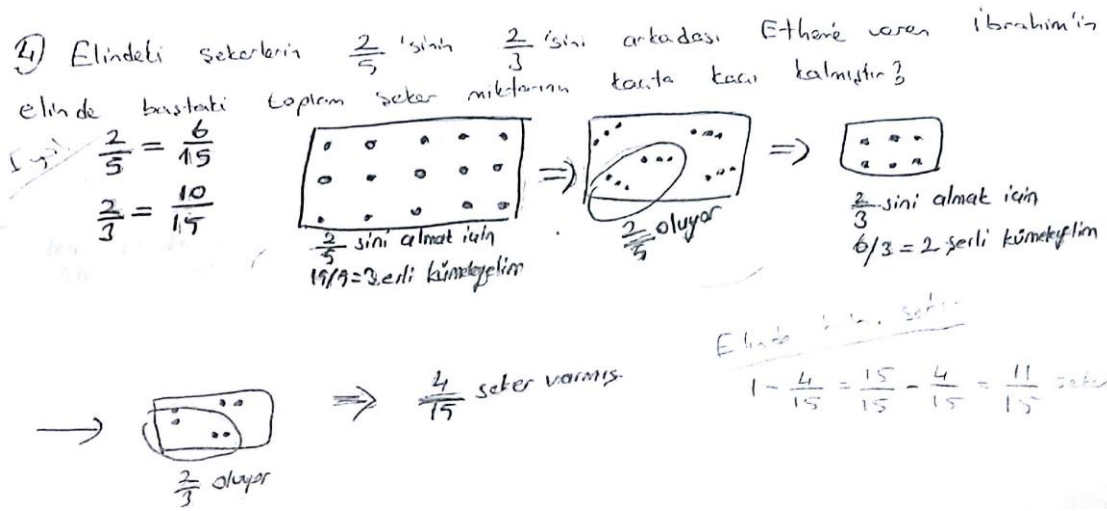 4) Elindeki şekerlerin 2/5 'sinin 2/3 'sini arkadaşı Ethem'e veren İbrahim'in
elinde baştaki toplam şeker miktarının kaçta kaçı kalmıştır?
2/5 = 6/15
2/3 = 10/15
2/5 sini almak için
15/5=3 erli kümeleyelim
⇒
2/5 oluyor
⇒
2/3 sini almak için
6/3 = 2 şerli kümeleyelim
→
2/3 oluyor
⇒ 4/15 şeker varmış.
Elinde
1 - 4/15 = 15/15 - 4/15 = 11/15 şeker